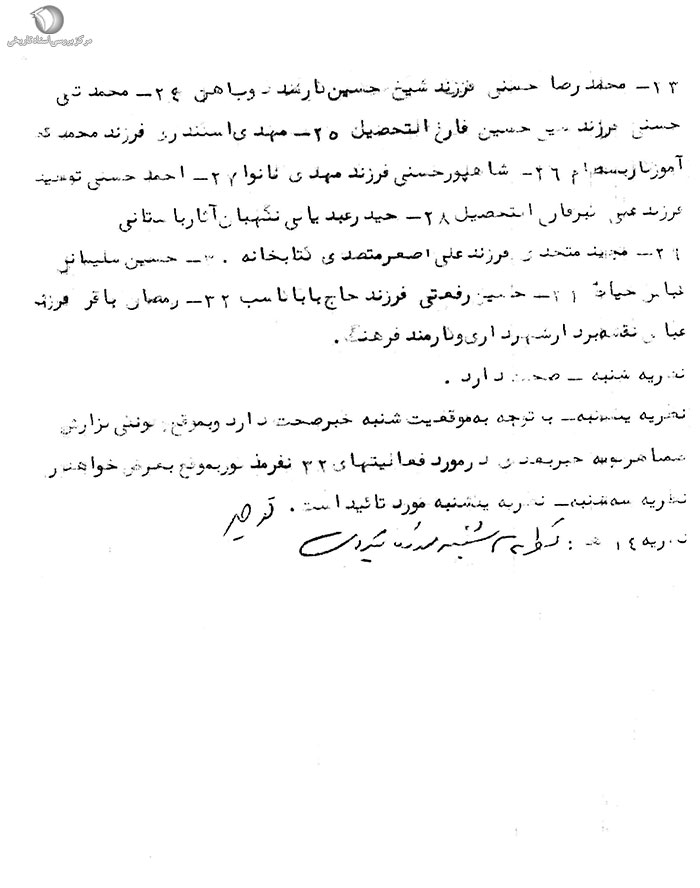 مرکز بررسی اسناد تاریخی
۲۳- محمد رضا حسنی فرزند شیخ حسین کارمند ذوب آهن ۲۴- محمد تقی
حسنی فرزند حسین فارغ التحصیل ۲۵- مهدی اسکندری فرزند محمد که
آموزگار بسطام ۲۶- شاهپور حسنی فرزند مهدی نانوا ۲۷- احمد حسنی
فرزند التحصیل ۲۸- حیدر عبد نگهبان آثار باستانی
۲۹- مجید متحدی فرزند علی اصغر متصدی کتابخانه ۳۰- حسین سلیمانی
عباس ۳۱- حسین رفعتی فرزند حاج بابا کاسب ۳۲- رمضان باقر فرزند
عباس نقشه بردار شهرداری و کارمند فرهنگ .
نظریه شنبه - صحت دارد .
نظریه یکشنبه - با توجه به موقعیت شنبه خبر صحت دارد و بموقع گزارش
خبر بعدی در مورد فعالیتهای ۳۲ نفر مذکور بموقع بعرض خواهد ر
نظریه سه شنبه - نظریه یکشنبه مورد تائید است .
نظریه ۱۴ ه :